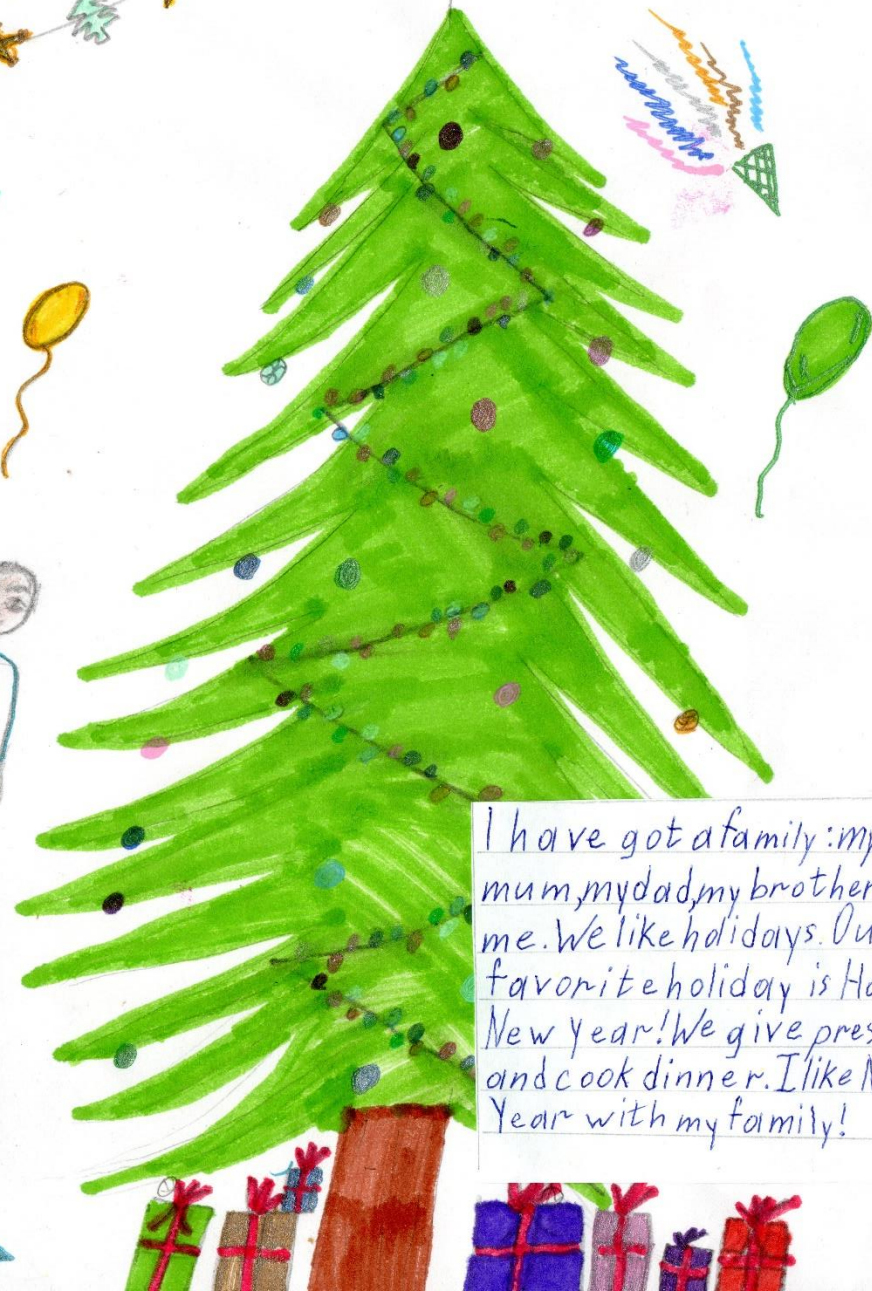 I have got a family: my
mum, my dad, my brother
me. We like holidays.
favorite holiday is
New Year! We give
and cook dinner. I like
Year with my family!